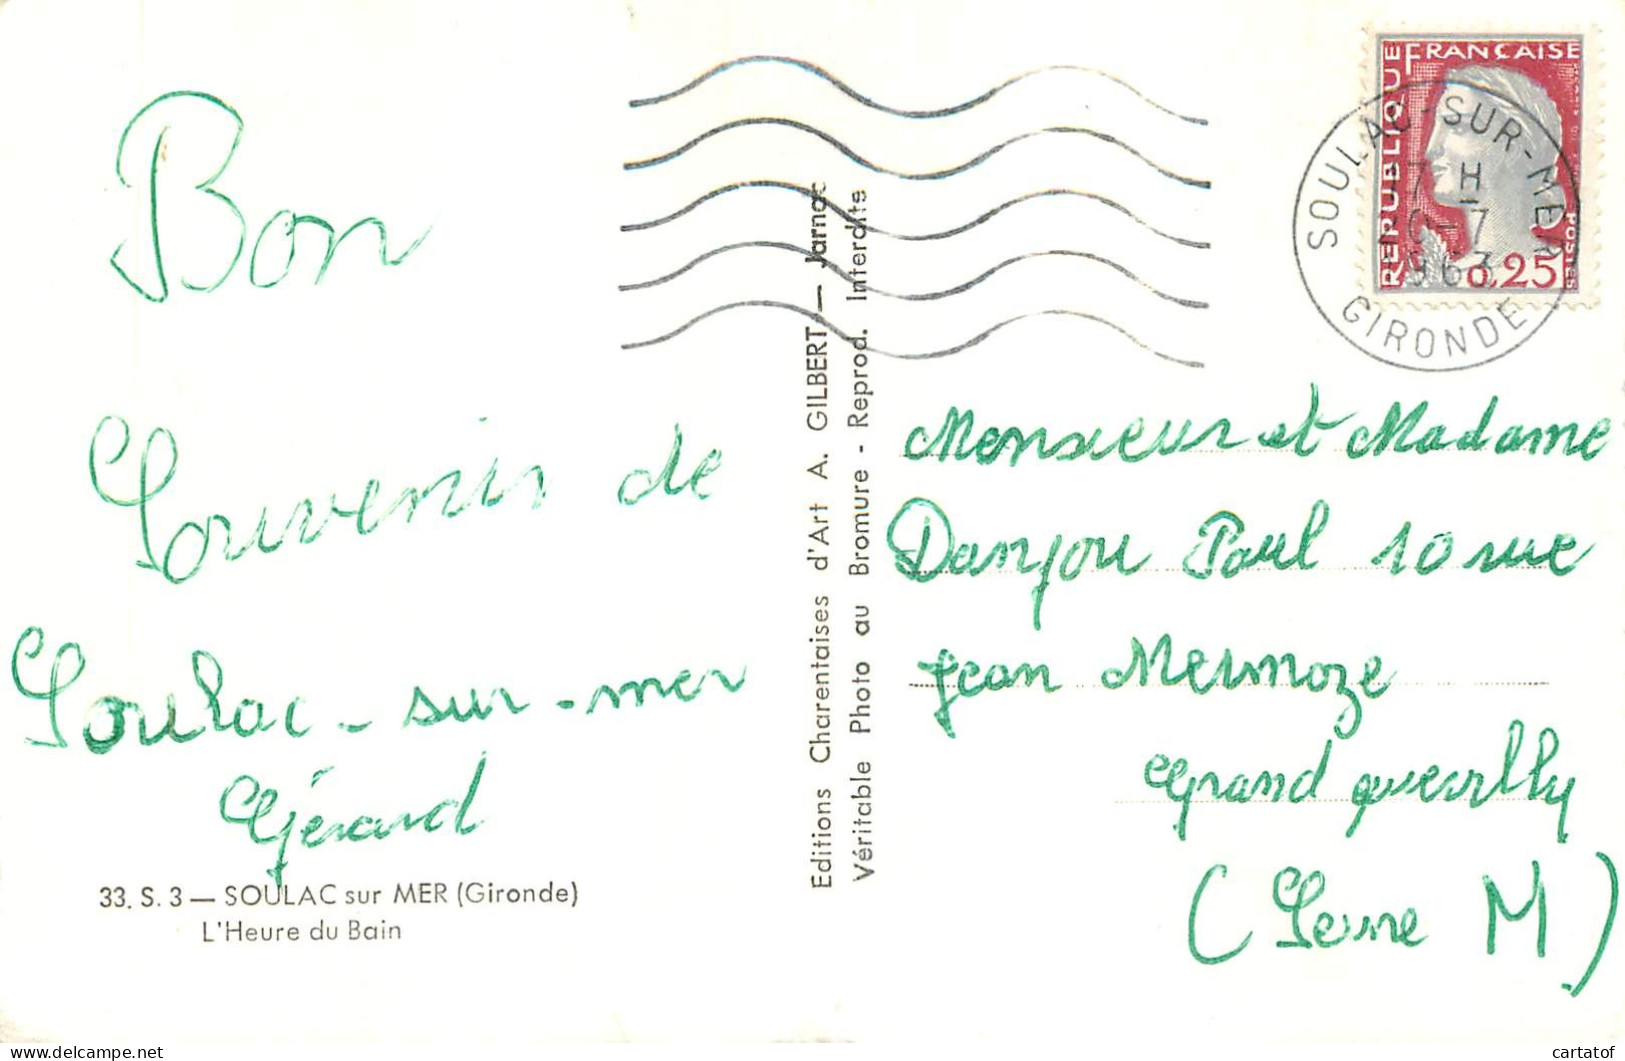 Bon
Souvenir de
Soulac-sur-mer
Gérard
33. S. 3 — SOULAC sur MER (Gironde)
L'Heure du Bain
Editions Charentaises d'Art A. GILBERT — Jarnac
Véritable Photo au Bromure - Reprod. Interdite
REPUBLIQUE
FRANÇAISE
0,25
SOULAC-SUR-MER
7 H
0-7
963
GIRONDE
Monsieur et Madame
Danjou Paul 10 rue
Jean Mermoze
Grand quevilly
(Seine M)
cartatof